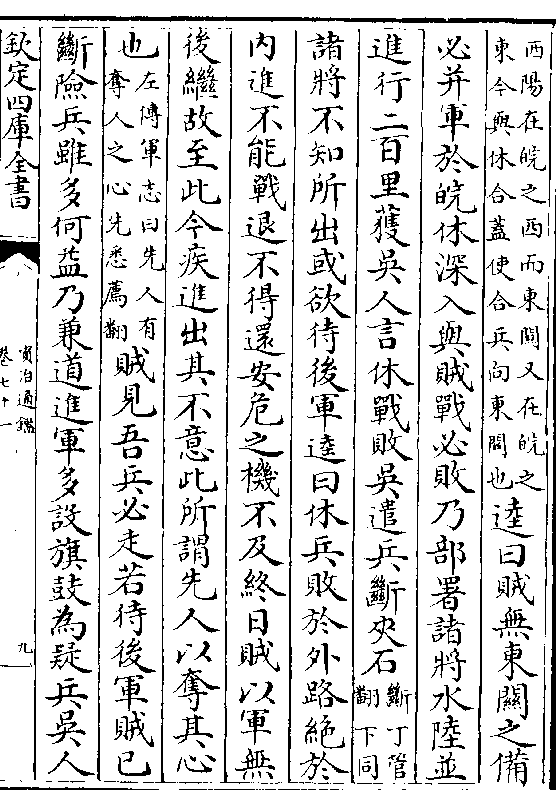 西陽在皖之西而東關又在皖之
東今與休合蓋使合兵向東關也
逵曰賊無東關之備
必并軍於皖休深入與賊戰必敗乃部署諸將水陸並
進行二百里獲吳人言休戰敗吳遣兵斷夾石
斷丁管
翻下同
諸將不知所出或欲待後軍逵曰休兵敗於外路絶於
内進不能戰退不得還安危之機不及終日賊以軍無
後繼故至此今疾進出其不意此所謂先人以奪其心
也
左傳軍志曰先人有
奪人之心先悉薦翻
賊見吾兵必走若待後軍賊已
斷險兵雖多何益乃兼道進軍多設旗鼓為疑兵吳人
欽定四庫全書
資治通鑑
卷七十一
九